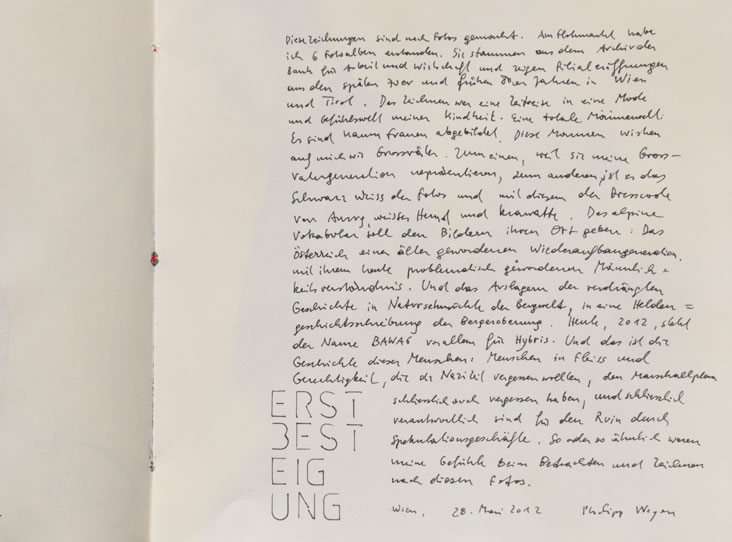 Diese Zeichnungen sind nach Fotos gemacht. Am Flohmarkt habe
ich 6 Fotoalben erstanden. Sie stammen aus dem Archiv der
Bank für Arbeit und Wirtschaft und zeigen Filialeröffnungen
aus den späten 70er und frühen 80er Jahren in Wien
und Tirol. Das Zeichnen war eine Zeitreise in eine Mode
und Gefühlswelt meiner Kindheit. Eine totale Männerwelt.
Es sind kaum Frauen abgebildet. Diese Männer wirken
auf mich wie Grossväter. Zum einen, weil sie meine Gross-
vatergeneration repräsentieren, zum anderen, ist es das
Schwarz Weiss der Fotos und mit diesem der Dresscode
von Anzug, weisses Hemd und Krawatte. Das alpine
Vokabular soll den Bildern ihren Ort geben: Das
Österreich einer älter gewordenen Wiederaufbaugeneration,
mit ihrem heute problematisch gewordenen Männlich=
keitsverständnis. Und das Auslagern der verdrängten
Geschichte in Natursehnsüchte der Bergwelt, in eine Helden=
geschichtsschreibung der Bergeroberung. Heute, 2012, steht
der Name BAWAG vor allem für Hybris. Und das ist die
Geschichte dieser Menschen: Menschen in Fleiss und
Gerechtigkeit, die die Nazizeit vergessen wollen, den Marshallplan
schliesslich auch vergessen haben, und schliesslich
verantwortlich sind für den Ruin durch
Spekulationsgeschäfte. So oder so ähnlich waren
meine Gefühle beim Betrachten und Zeichnen
nach diesen Fotos.
ERST
BEST
EIG
UNG
Wien, 28. März 2012 Philipp